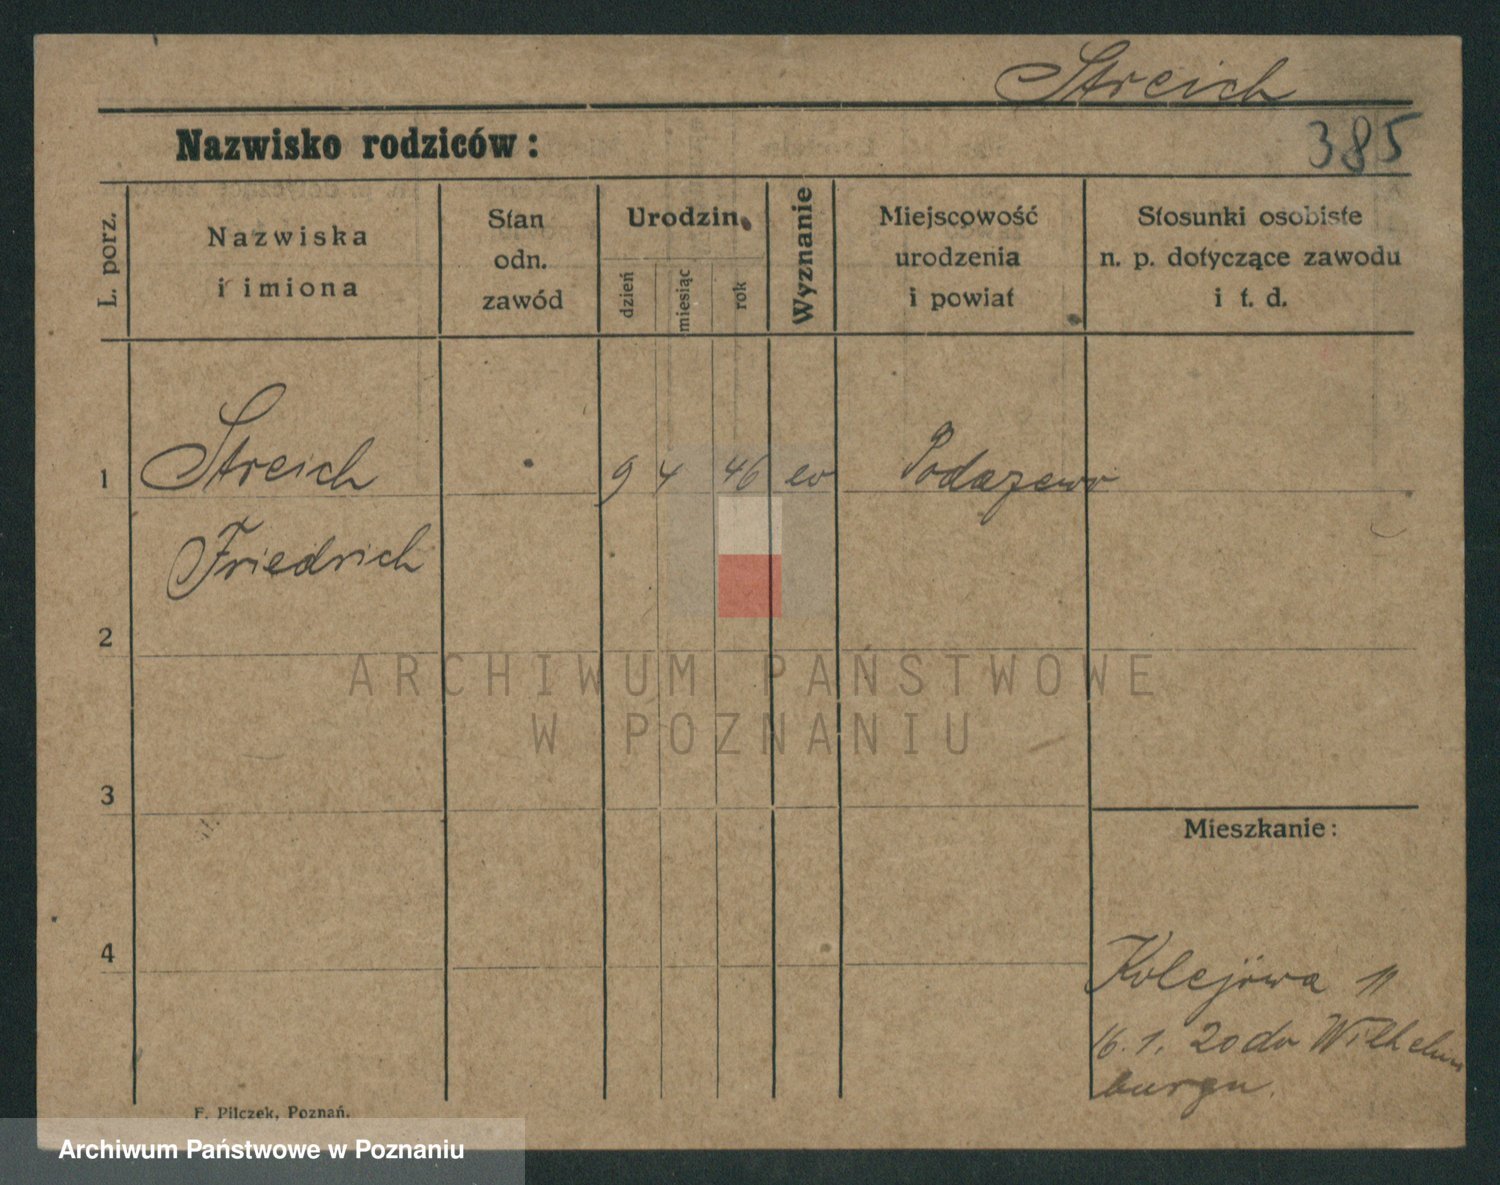 Streich
Nazwisko rodziców:
385
L. porz.
Nazwiska
i imiona
Stan
odn.
zawód
Urodzin.
dzień
miesiąc
rok
Wyznanie
Miejscowość
urodzenia
i powiat
Stosunki osobiste
n. p. dotyczące zawodu
i t. d.
1 Streich 9 4 46 ev
Friedrich
2
ARCHIWUM PAŃSTWOWE
W POZNANIU
3
Mieszkanie:
4
Kolejowa 11
16. 1. 20 do Wilhelms
burgu.
F. Pilczek, Poznań.
Archiwum Państwowe w Poznaniu